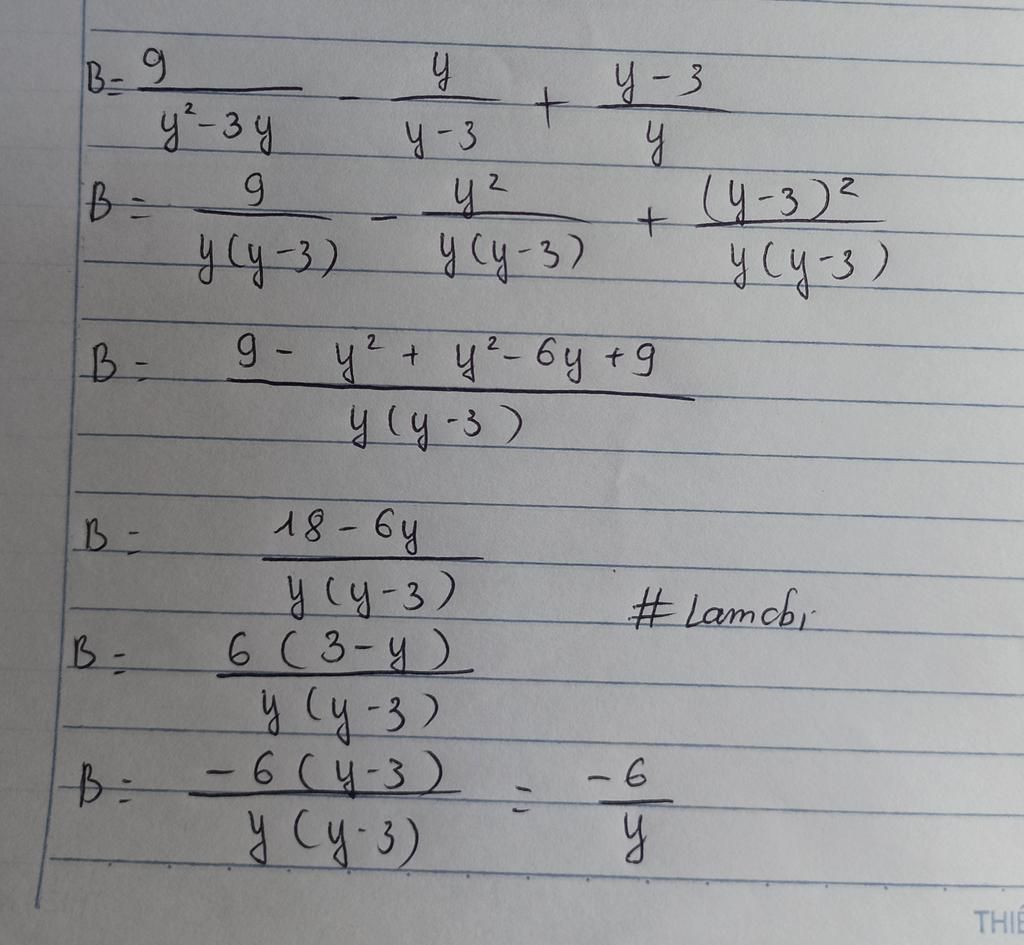 B = 9/(y² - 3y) - y/(y - 3) + (y - 3)/y
B = 9/(y(y - 3)) - y²/(y(y - 3)) + (y - 3)²/(y(y - 3))
B = (9 - y² + y² - 6y + 9)/(y(y - 3))
B = (18 - 6y)/(y(y - 3))
# Lamcbi
B = 6(3 - y)/(y(y - 3))
B = -6(y - 3)/(y(y - 3)) = -6/y
THIẾ